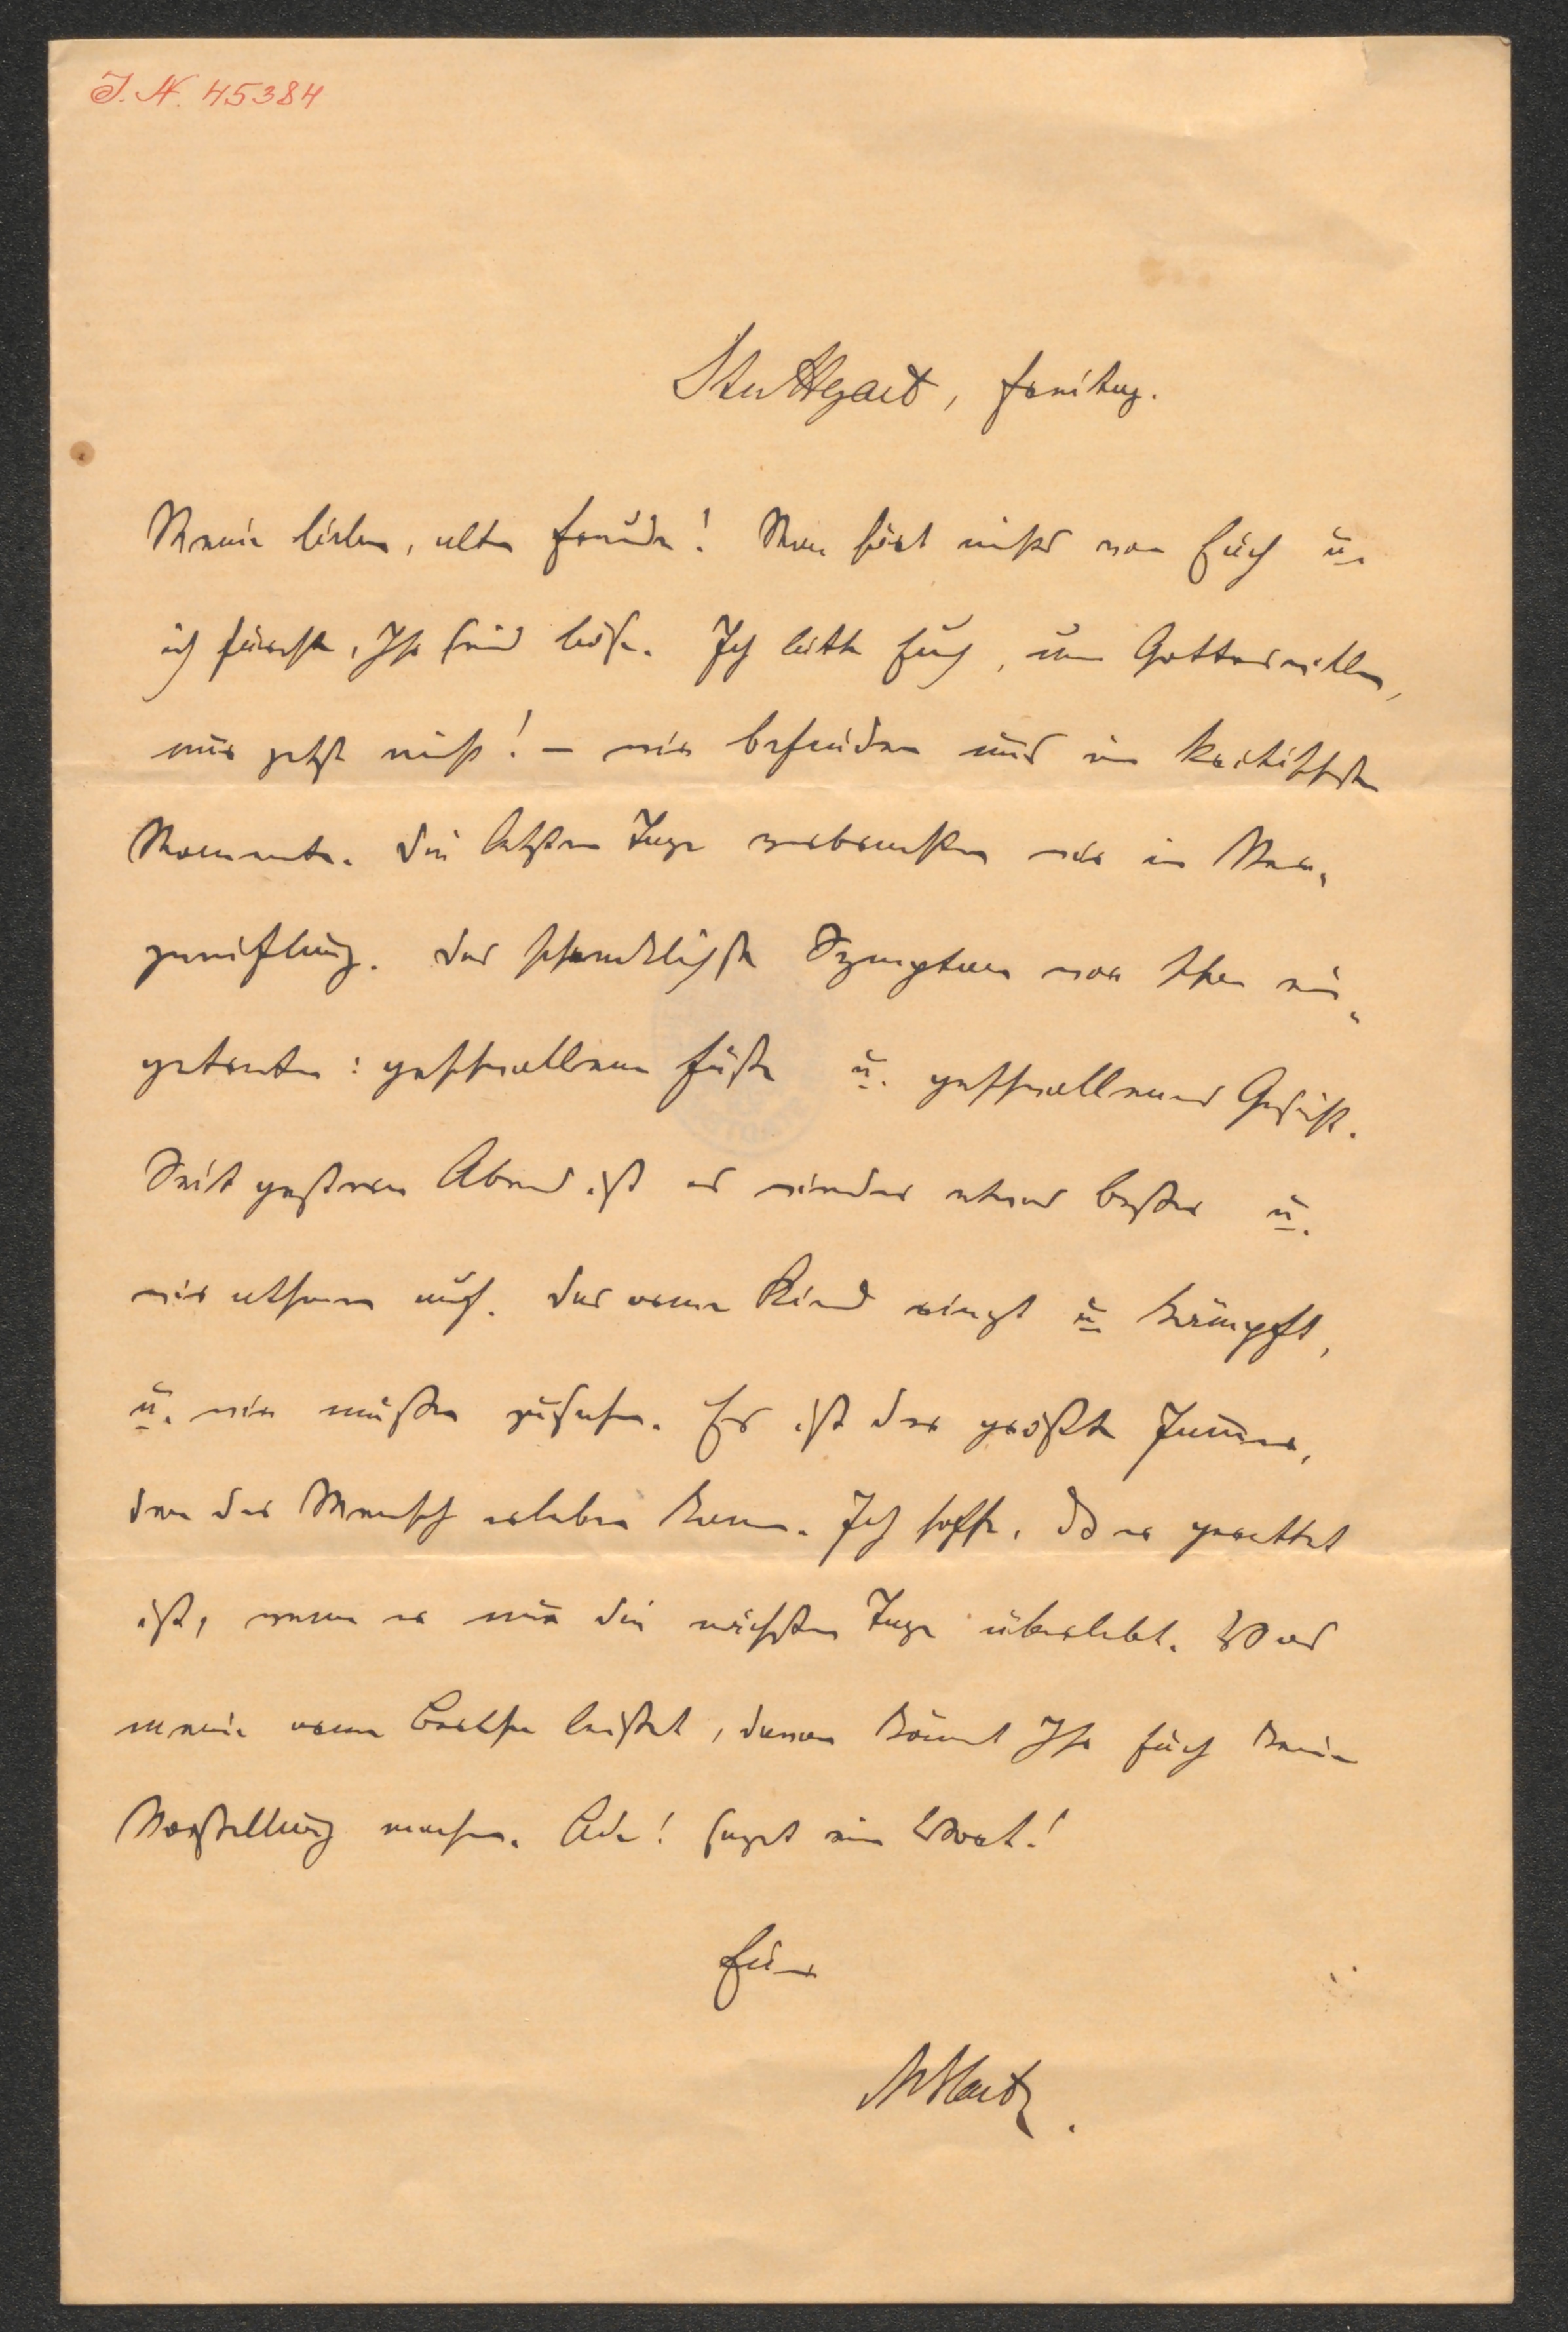 J. N. 45384
Stuttgart, Freitag.
Meine lieben, alten Freunde! Man hört nichts von Euch u.
ich fürchte, Ihr seid böse. Ich bitte Euch, um Gotteswillen,
nur jetzt nicht! – wir befinden uns im kritischsten
Momente. Die letzten Tage verbrachten wir in Ver-
zweiflung. Das schrecklichste Symptom war schon ein-
getreten: geschwollene Füße u. geschwollenes Gesicht.
Seit gestern Abend ist es wieder etwas besser u.
wir athmen auf. Das arme Kind ringt u. kämpft,
u. wir müssen zusehen. Es ist der größte Jammer,
den der Mensch erleben kann. Ich hoffe, daß er gerettet
ist, wenn er nur die nächsten Tage überlebt. Was
meine arme Bertha leistet, davon könnt Ihr Euch keine
Vorstellung machen. Ade! Saget ein Wort!
Euer
MHartm.